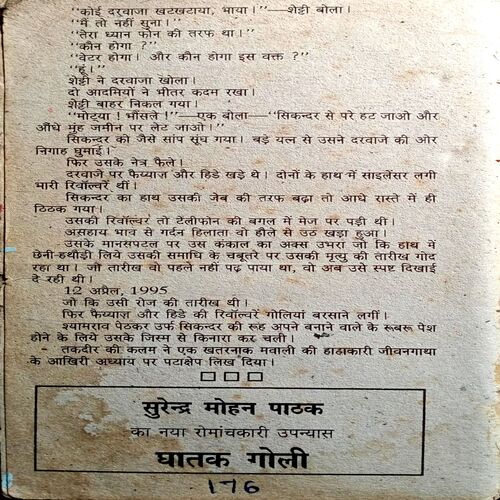 "कोई दरवाजा खटखटाया, भाया।"—शेट्टी बोला।
"मैं तो नहीं सुना।"
"तेरा ध्यान फोन की तरफ था।"
"कौन होगा ?"
"वेटर होगा। और कौन होगा इस वक्त ?"
"हूं।"
शेट्टी ने दरवाजा खोला।
दो आदमियों ने भीतर कदम रखा।
शेट्टी बाहर निकल गया।
"मोट्या ! भौंसले !"—एक बोला—"सिकन्दर से परे हट जाओ और
औंधे मुंह जमीन पर लेट जाओ।"
सिकन्दर को जैसे सांप सूंघ गया। बड़े यत्न से उसने दरवाजे की ओर
निगाह घुमाई।
फिर उसके नेत्र फैले।
दरवाजे पर फैय्याज़ और हिडे खड़े थे। दोनों के हाथ में साइलेंसर लगी
भारी रिवॉल्वरें थीं।
सिकन्दर का हाथ उसकी जेब की तरफ बढ़ा तो आधे रास्ते में ही
ठिठक गया।
उसकी रिवॉल्वर तो टेलीफोन की बगल में मेज पर पड़ी थी।
असहाय भाव से गर्दन हिलाता वो हौले से उठ खड़ा हुआ।
उसके मानसपटल पर उस कंकाल का अक्स उभरा जो कि हाथ में
छेनी-हथौड़ी लिये उसकी समाधि के चबूतरे पर उसकी मृत्यु की तारीख गोद
रहा था। जो तारीख वो पहले नहीं पढ़ पाया था, वो अब उसे स्पष्ट दिखाई
दे रही थी।
12 अप्रैल, 1995
जो कि उसी रोज की तारीख थी।
फिर फैय्याज़ और हिडे की रिवॉल्वरें गोलियां बरसाने लगीं।
श्यामराव पेठकर उर्फ सिकन्दर की रूह अपने बनाने वाले के रूबरू पेश
होने के लिये उसके जिस्म से किनारा कर चली।
तकदीर की कलम ने एक खतरनाक मवाली की हाहाकारी जीवनगाथा
के आखिरी अध्याय पर पटाक्षेप लिख दिया।
सुरेन्द्र मोहन पाठक
का नया रोमांचकारी उपन्यास
घातक गोली
176